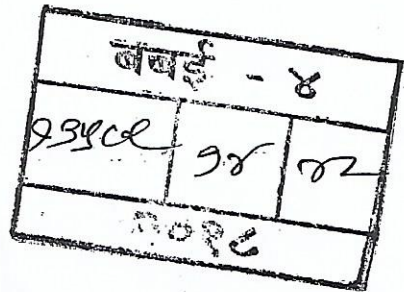 बबई - ४
१३५८९ १४ ४२
२०१८